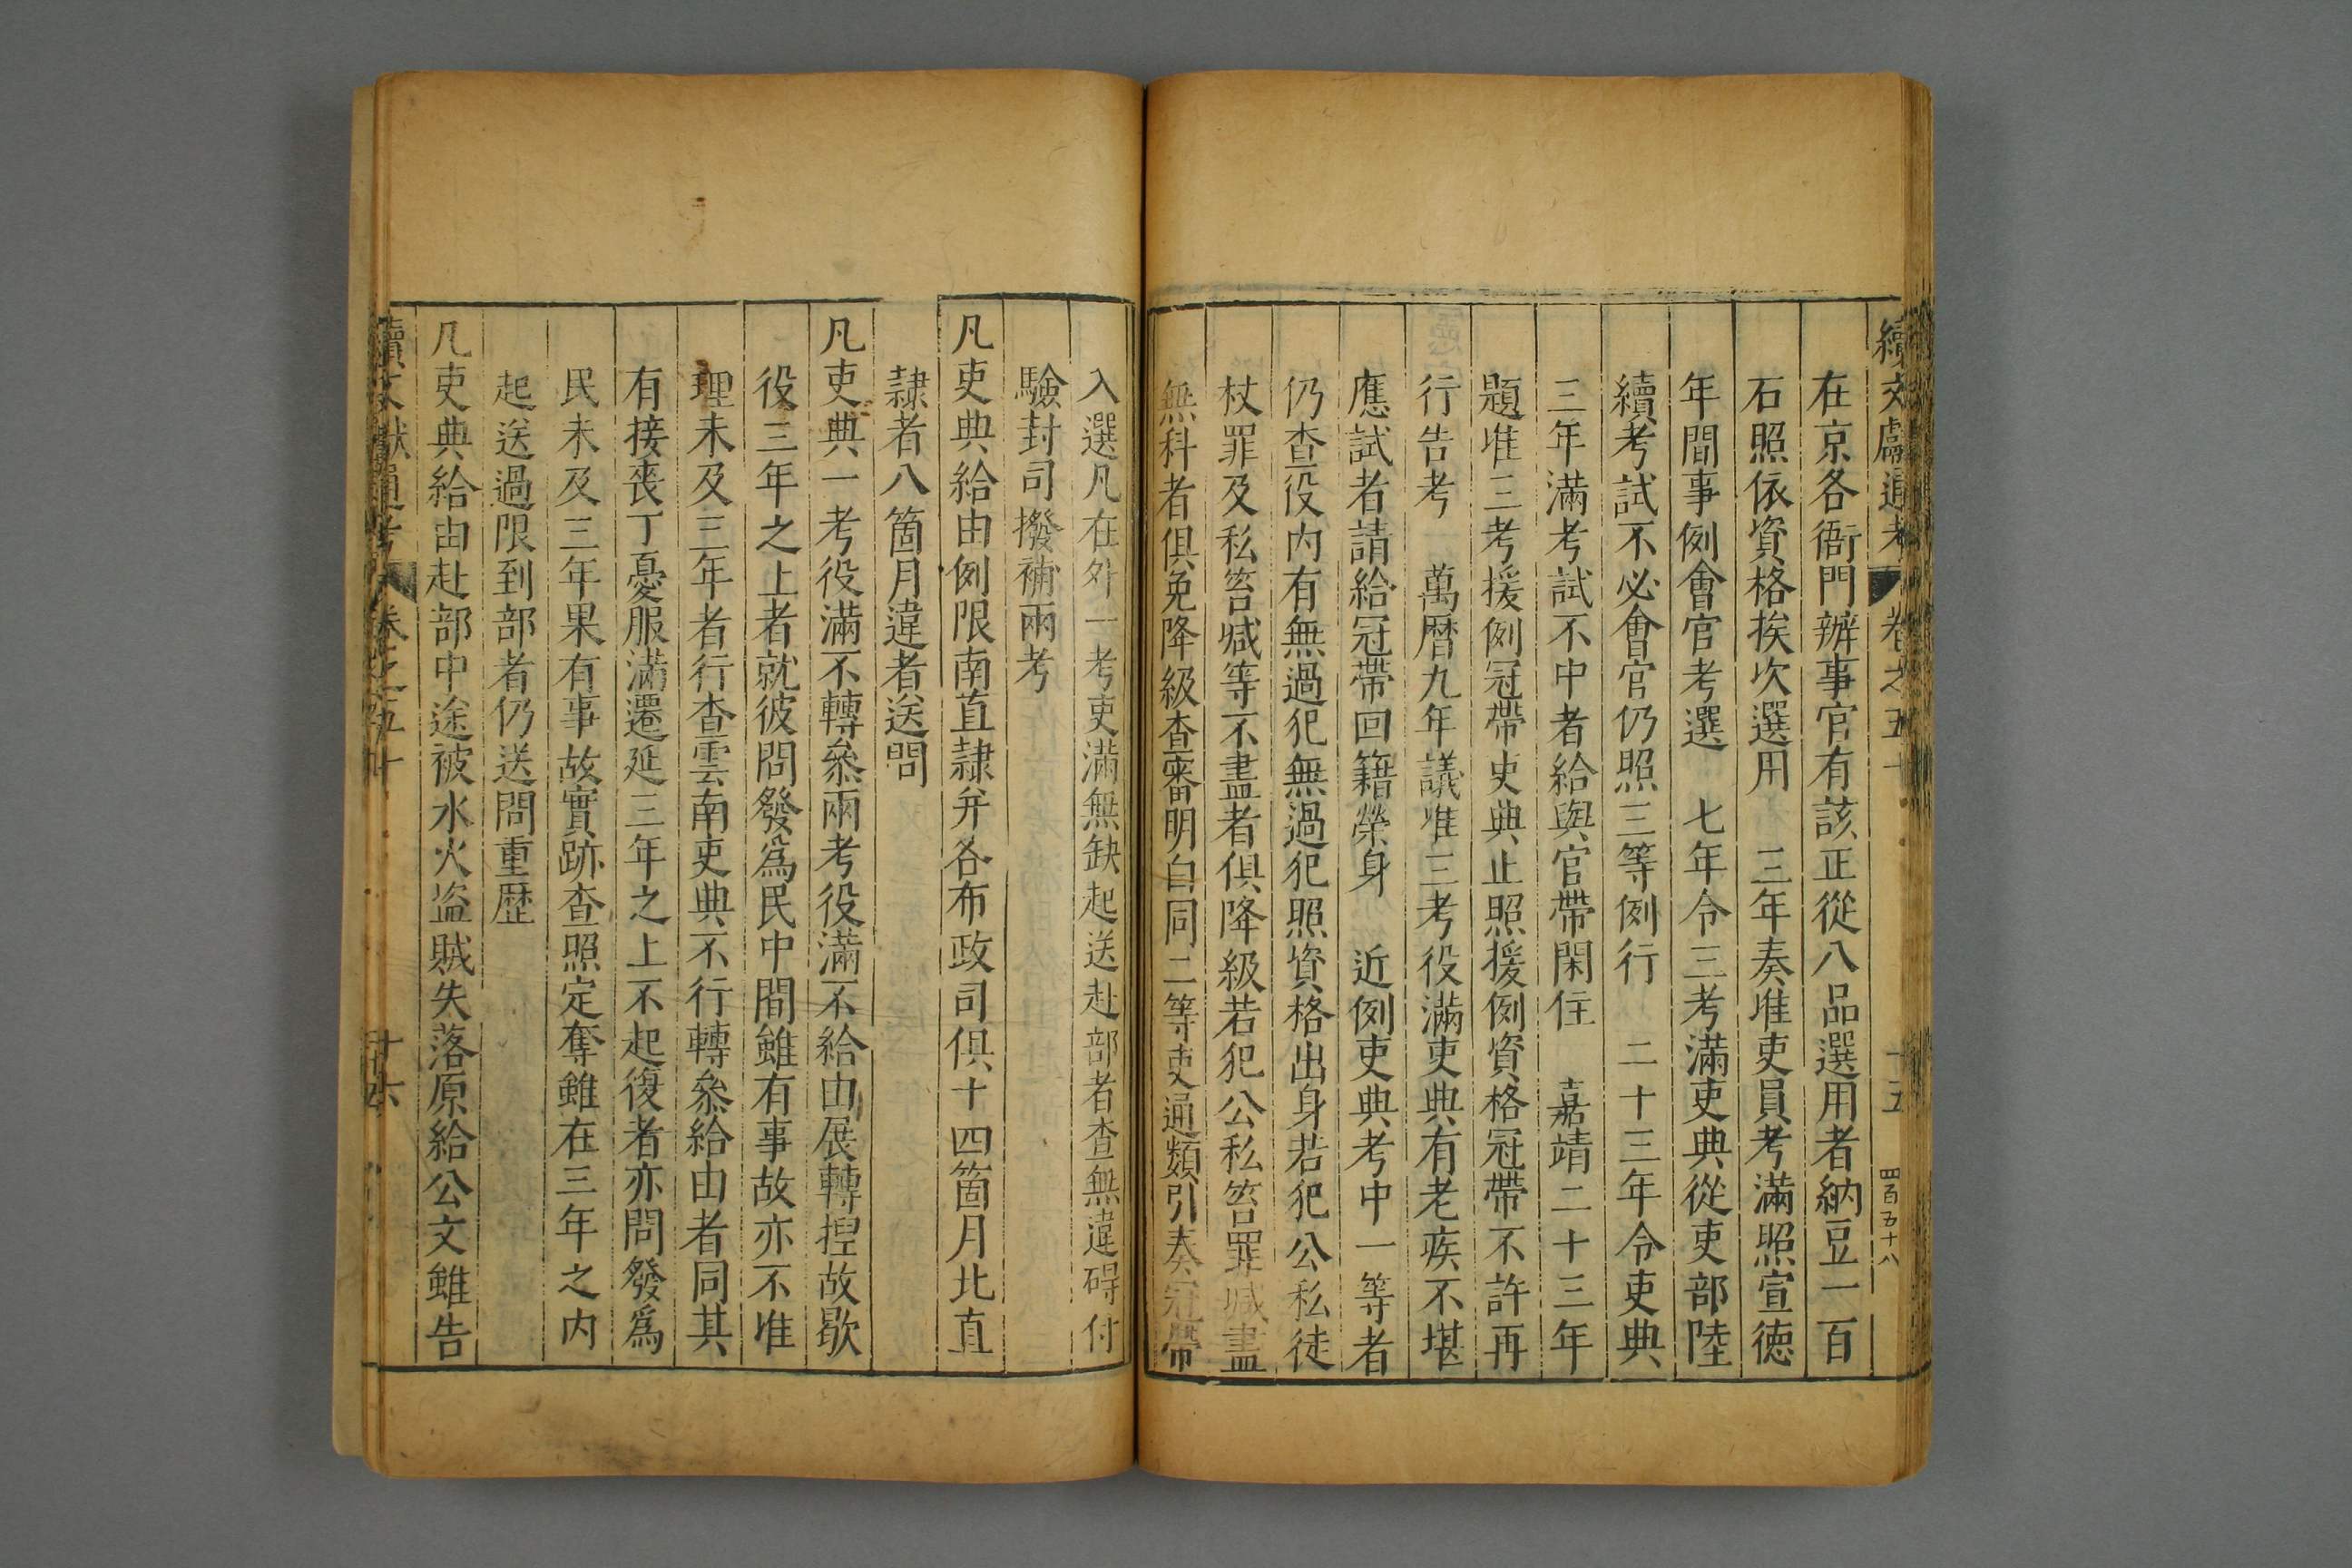 續文獻通考 卷之五十 十五 四百五十八
在京各衙門辦事官有該正從八品選用者納豆一百
石照依資格挨次選用 三年奏准吏員考滿照宣德
年間事例會官考選 七年令三考滿吏典從吏部陸
續考試不必會官仍照三等例行 二十三年令吏典
三年滿考試不中者給與官帶閑住 嘉靖二十三年
題准三考援例冠帶吏典止照援例資格冠帶不許再
行告考 萬曆九年議准三考役滿吏典有老疾不堪
應試者請給冠帶回籍榮身 近例吏典考中一等者
仍查役内有無過犯無過犯照資格出身若犯公私徒
杖罪及私笞减等不盡者俱降級若犯公私笞罪减盡
無科者俱免降級查審明白同二等吏通類引奏冠帶
入選凡在外一考吏滿無缺起送赴部者查無違碍付
驗封司撥補兩考
凡吏典給由例限南直隷并各布政司俱十四箇月北直
隷者八箇月違者送問
凡吏典一考役滿不轉叅兩考役滿不給由展轉揑故歇
役三年之上者就彼問發爲民中間雖有事故亦不准
理未及三年者行查雲南吏典不行轉叅給由者同其
有接喪丁憂服滿遷延三年之上不起復者亦問發爲
民未及三年果有事故實跡查照定奪雖在三年之内
起送過限到部者仍送問重歷
凡吏典給由赴部中途被水火盗賊失落原給公文雖告
續文獻通考 卷之五十 十六